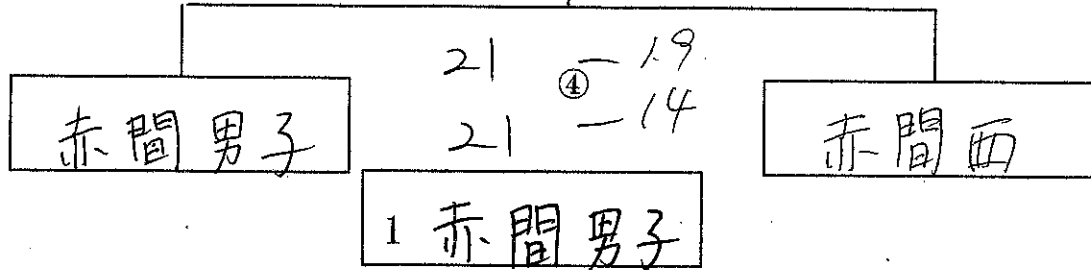 21 - 19
④
21 - 14
赤間男子
赤間西
1 赤間男子